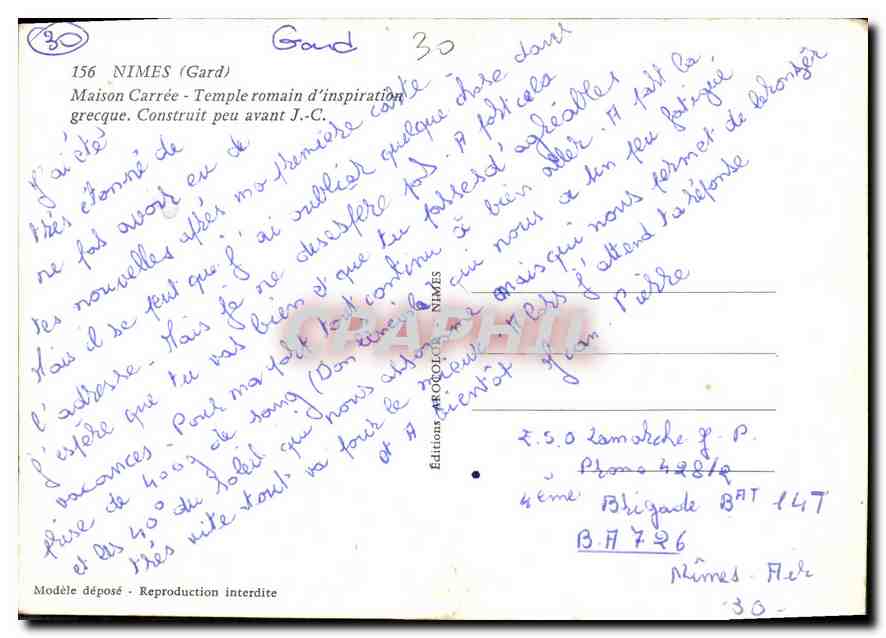 30
Gard
30
156 NIMES (Gard)
Maison Carrée - Temple romain d'inspiration
grecque. Construit peu avant J.-C.
J'ai été
très étonné de
ne pas avoir eu de
tes nouvelles après ma première carte -
Mais il se peut que j'ai oublier quelque chose dans
l'adresse - Mais je ne desespère pas. A part cela
j'espère que tu vas bien et que tu passes d'agréables
vacances - Pour ma part tout continu à bien aller. A part la
prise de 400g de sang (Don bénévole) qui nous a un peu fatigué
et les 40° du soleil qui nous assomme mais qui nous permet de bronzer
très vite tout va pour le mieux. Alors j'attend ta réponse
et A bientôt Jean-Pierre
CPAPHIL
Editions AROCOLOR - NIMES
E.S.O Lamarche J-P.
Promo 428/2
4ème Brigade BAT 14T
B.A 726
Nîmes-Air
30-
Modèle déposé - Reproduction interdite